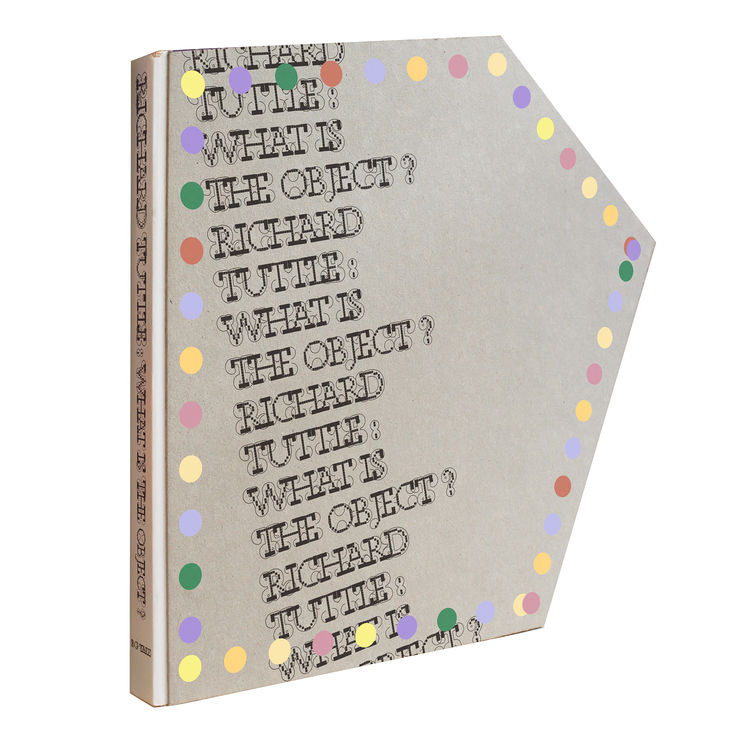 RICHARD TUTTLE: WHAT IS THE OBJECT?
RICHARD
TUTTLE:
WHAT IS
THE OBJECT?
RICHARD
TUTTLE:
WHAT IS
THE OBJECT?
RICHARD
TUTTLE:
WHAT IS
THE OBJECT?
RICHARD
TUTTLE:
WHAT IS
OBJECT?